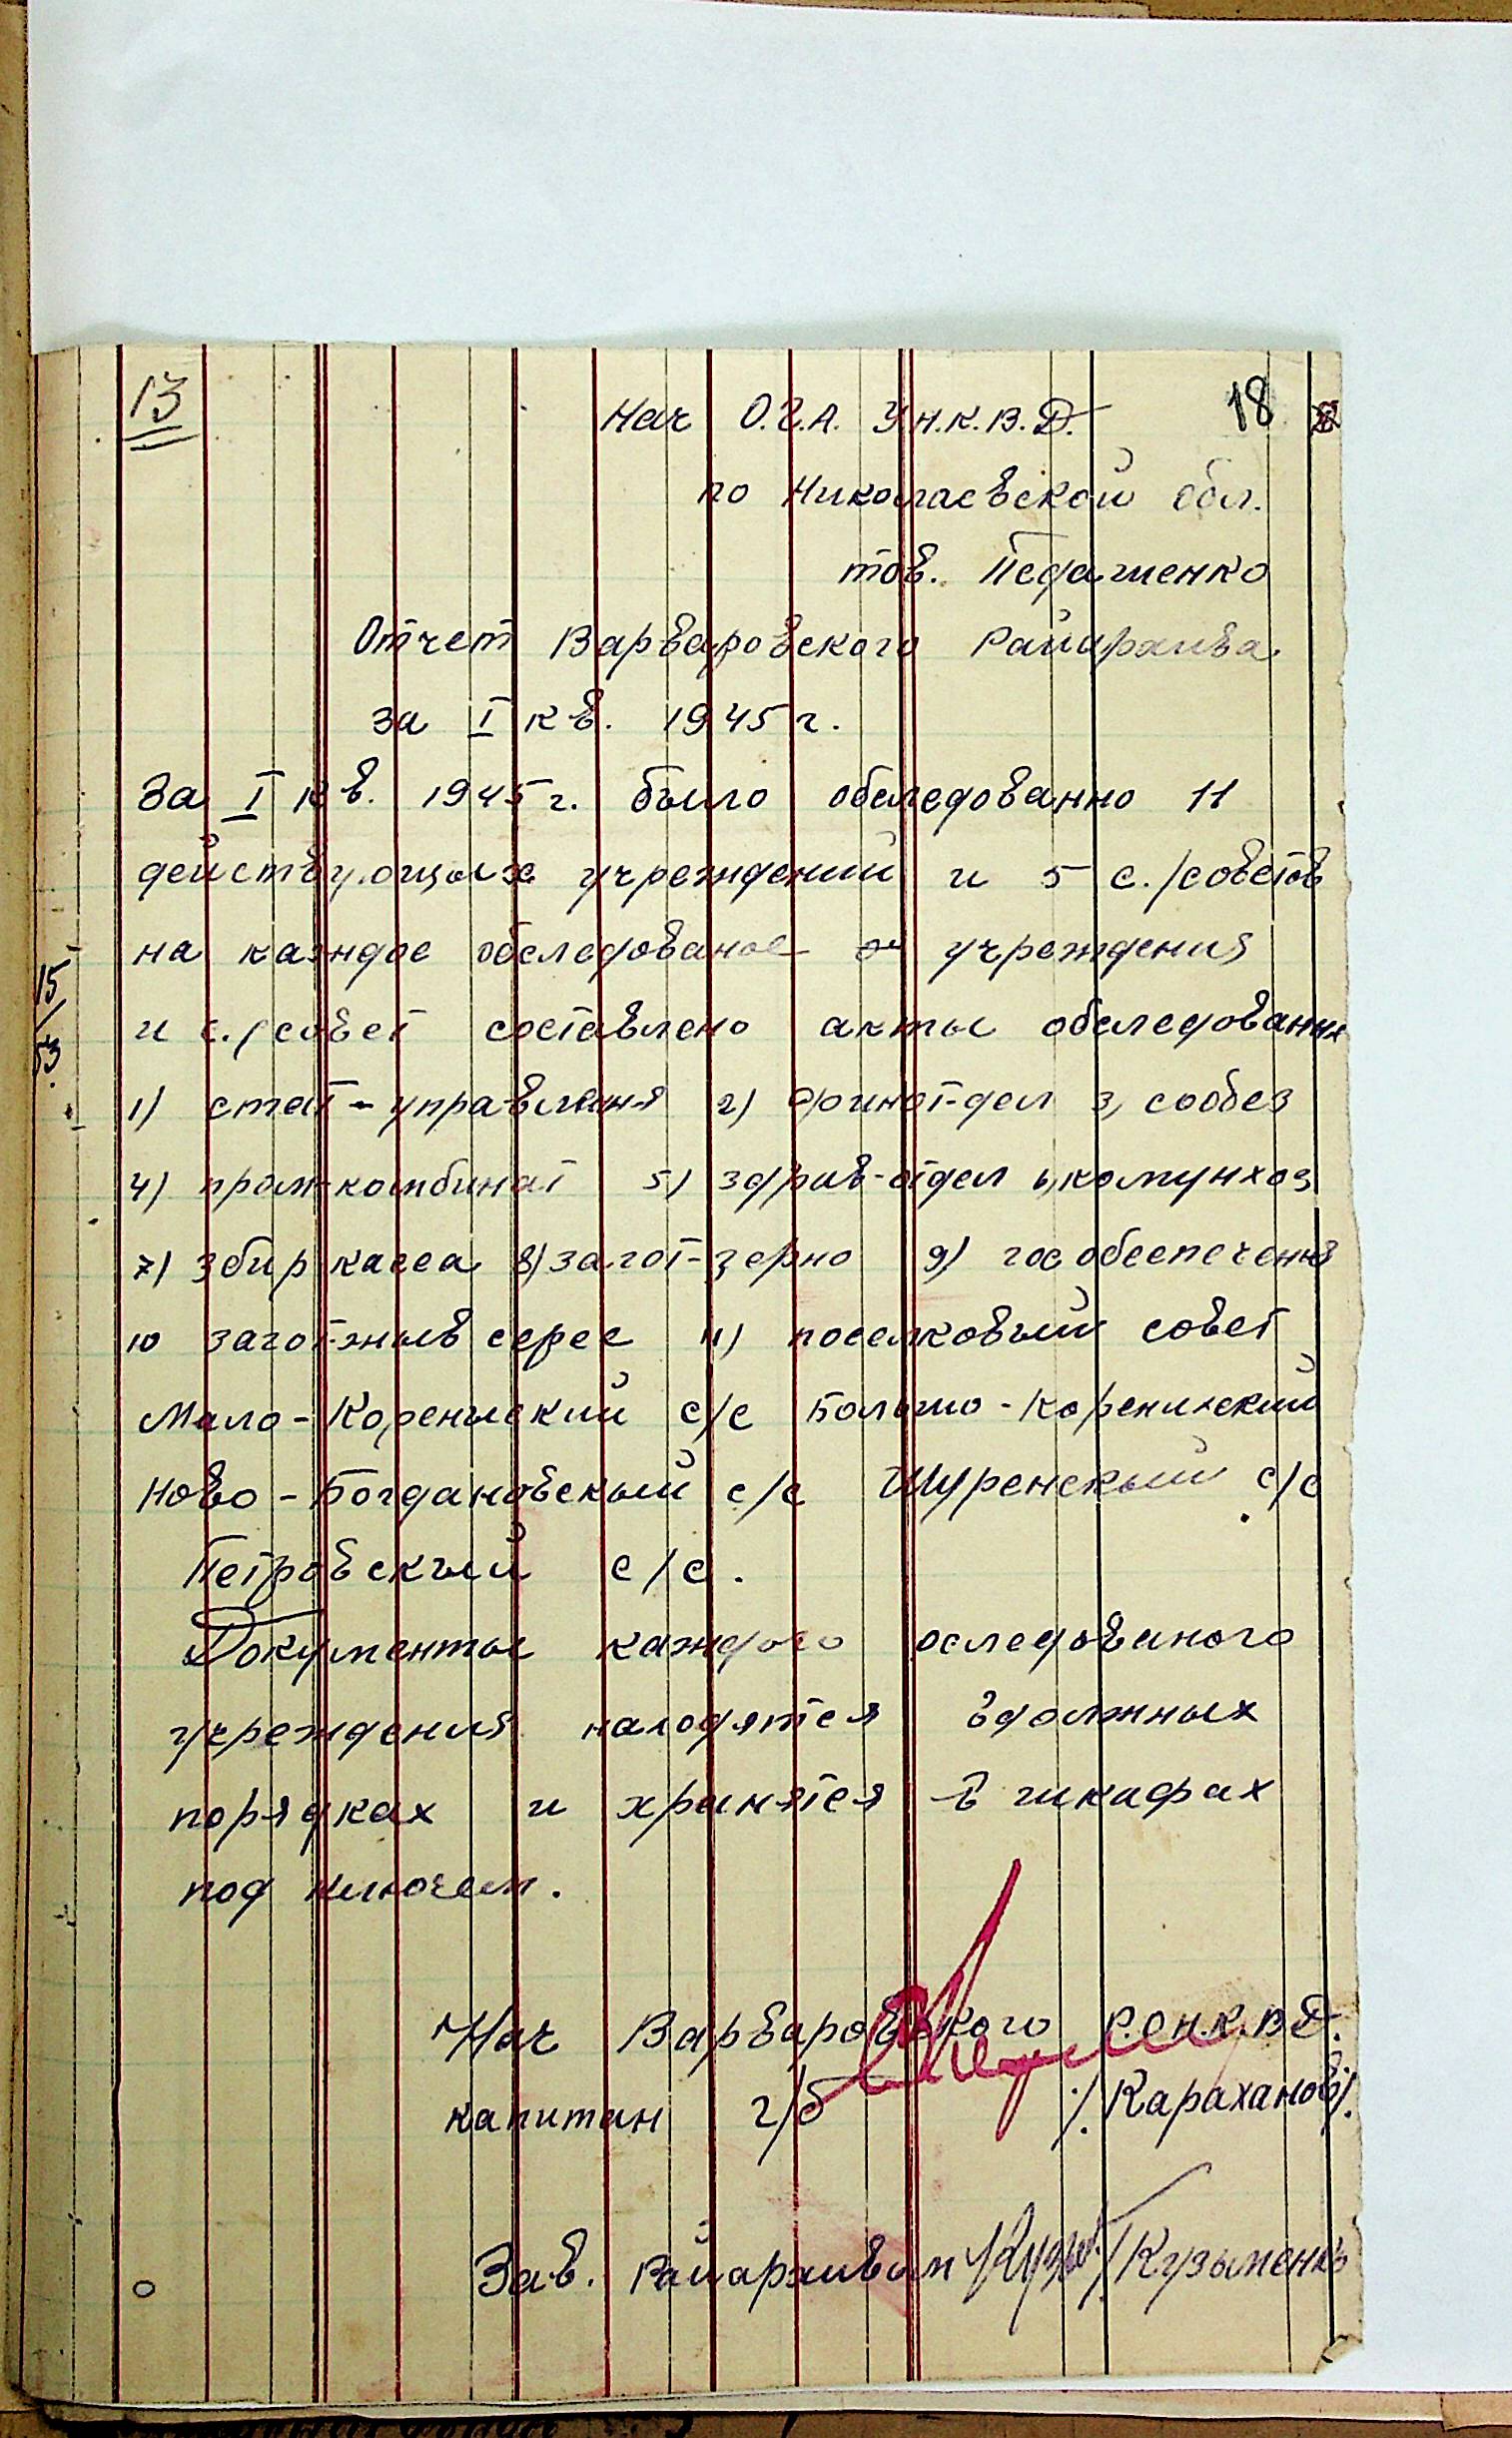 13
18
Нач О.Г.А. У.Н.К.В.Д.
по Николаевской обл.
тов. Педашенко
Отчет Варваровского Райархива
за I кв. 1945 г.
За I кв. 1945 г. было обследованно 11
действующых учреждений и 5 с./советов
на каждое обследованое учреждения
и с./совет составлено акты обследования
15/53.
1) стат-управленя 2) финотдел 3) собез
4) промкомбинат 5) здрав-отдел 6) комунхоз
7) збир касса 8) загот-зерно 9) гособеспеченя
10 загот-жывсерье 11) поселковый совет
Мало-Коренихский с/с Больто-Коренихский
Ново-Богдановскый с/с Шуренскый с/с
Петровскый с/с.
Документы каждого оследованого
учреждения находятся вдолжных
порядках и хранятся в шкафах
под ключем.
Нач Варваровского Р.О Н.К.В.Д.
капитан г/б /Караханов/.
Зав. Райархивом /Кузьменко